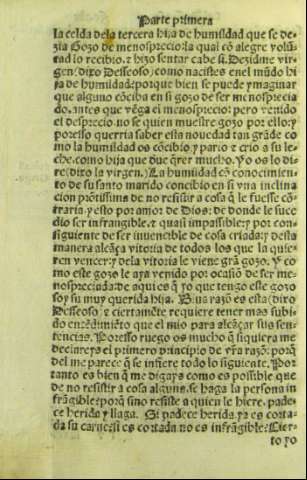 Parte primera
la celda dela tercera hija de humildad que se de-
zia Gozo de menosprecio: la qual cõ alegre volũ
tad lo recibio, e hizo sentar cabe si. Dezidme vir
gen (dixo Desseoso) como nacistes enel mũdo hi
ja de humildad: porque bien se puede ymaginar
que alguno cõciba en si gozo de ser menosprecia
do, antes que vẽga el menosprecio: pero venido
el desprecio, no se quien muestre gozo por ello: y
poresso querria saber esta nouedad tan grãde co
mo la humildad os cõcibio, y pario e crio a su le
che, como hija que due q̃rer mucho. Yo os lo di
re (dixo la virgen.) La humildad cõ conocimien
to de su santo marido concibio en si vna inclina
cion prõtissima de no resistir a cosa q̃ le fuesse cõ
traria, y esto por amor de Dios: de donde le suce
dio ser infrangible, e quasi impassible: y por con
siguiente de ser inuencible de cosa criada: y desta
manera alcãça vitoria de todos los que la quie
ren vencer: y dela vitoria le viene grã gozo. Y co
mo este gozo le aya venido por ocasiõ de ser me
nospreciada: de aqui es q̃ yo que tengo este gozo
soy su muy querida hija. Bua razõ es esta (dixo
Desseoso) e ciertamẽte requiere tener mas subi
do entẽdimiẽto que el mio para alcãçar sus sen
tencias. Poresso ruego os mucho q̃ siquiera me
declareys el primero principio de vr̃a razõ: porq̃
del me parece q̃ se infiere todo lo siguiente. Por
tanto es bien q̃ me digays como es possible que
de no resistir a cosa alguna, se haga la persona in
frãgible: porq̃ sino resiste a quien le hiere, pade-
ce herida y llaga. Si padece herida, ya es corta-
da su carne: si es cortada no es infrãgible. Cier-
to yo